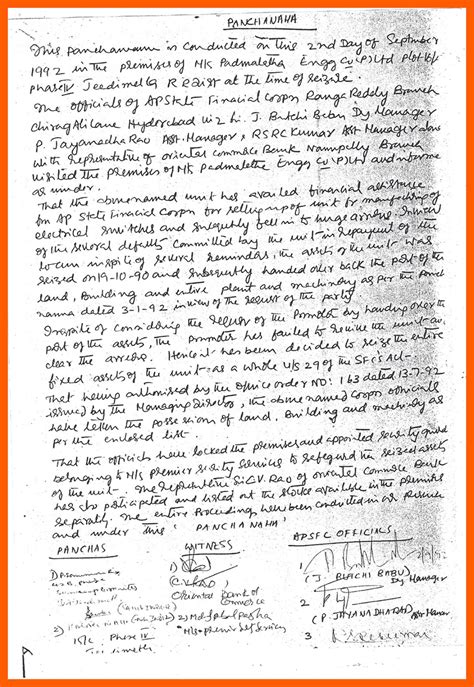 PANCHANAMA
This Panchanama is conducted on this 2nd Day of September
1992 in the premises of M/s Padmalatha Engg Co (P) Ltd Plot 16/6
phase IV Jeedimetla R R Dist at the time of seizure.
The officials of AP State Financial Corpn Ranga Reddy Branch
Chirag Ali Lane Hyderabad viz J. Butchi Babu Dy Manager
P. Jayanadha Rao Asst. Manager, RSR Kumar Asst Manager along
with Representative of oriental commerce Bank Nampally Branch
visited the premises of M/s Padmaletha Engg Co (P) Ltd and
as under.
That the abovenamed unit has availed financial assistance
from AP State Financial Corpn for setting up of unit for manufacturing of
electrical switches and subsequently fell in to huge arrears. In view
of the several defaults committed by the unit in repayment of the
loan inspite of several reminders, the assets of the unit was
seized on 19-10-90 and subsequently handed over back the part of the
land, Building and entire plant and machinery as per the
nama dated 3-1-92 in view of the request of the party
Inspite of considering the request of the Promoter by handing over the
part of the assets, the promoter has failed to revive the unit
clear the arrears. Hence it has been decided to seize the entire
fixed assets of the unit as a whole U/S 29 of the SFC's Act-
That being authorised by the office order NO: 163 dated 13-7-92
issued by the Managing Director, the above named Corpn officials
have taken the possession of land, Building and machinery as
per the enclosed list.
That the officials have locked the premises and appointed security guard
belonging to M/s Premier Security Services to safeguard the seized assets
of the unit. The Representative Sri C.V. Rao of oriental Commerce Bank
has also participated and listed out the stocks available in the premises
separately. The entire Proceedings have been conducted in our presence
and under this 'PANCHANAMA'
PANCHAS WITNESS APSFC OFFICIALS
1)
C.V. RAO
Oriental Bank of
Commerce
(J. BUTCHI BABU)
Dy Manager
2)
Phase IV
2)
M/s premier Services
(P. JAYANADHA RAO)
3